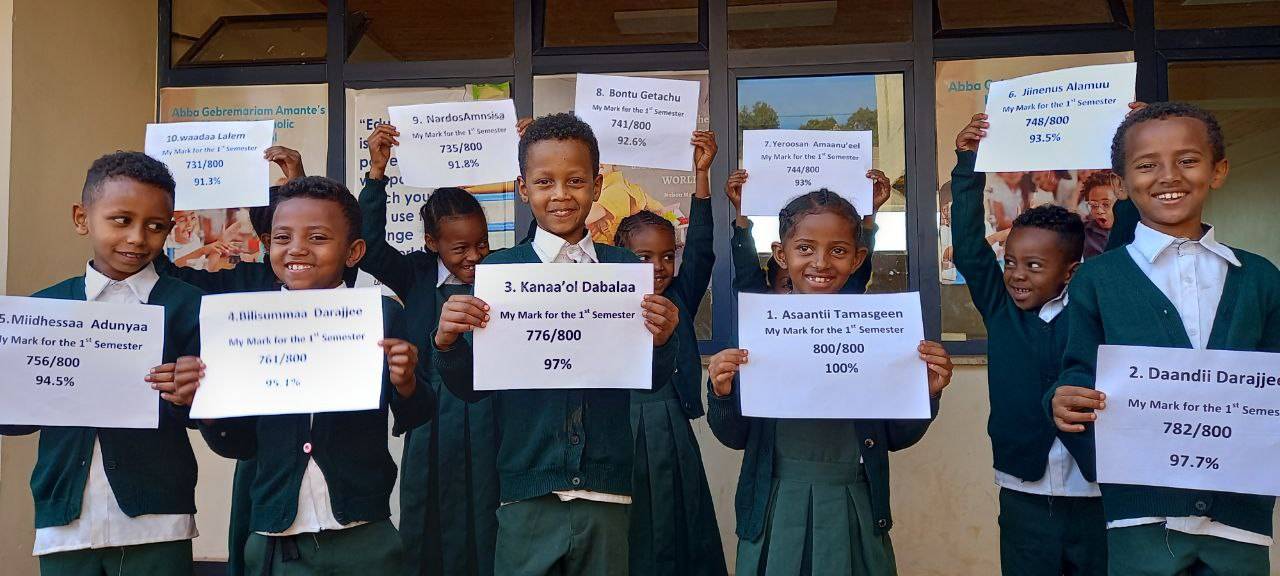 Abba Gebremariam Amante's
olic
10.waadaa Lalem
My Mark for the 1st Semester
731/800
91.3%
9. NardosAmnsisa
My Mark for the 1st Semester
735/800
91.8%
8. Bontu Getachu
My Mark for the 1st Semester
741/800
92.6%
7.Yeroosan Amaanu'eel
My Mark for the 1st Semester
744/800
93%
Abba Ge
te's
6. Jiinenus Alamuu
My Mark for the 1st Semester
748/800
93.5%
WORL
5.Miidhessaa Adunyaa
My Mark for the 1st Semester
756/800
94.5%
4.Bilisummaa Darajjee
My Mark for the 1st Semester
761/800
95.1%
3. Kanaa'ol Dabalaa
My Mark for the 1st Semester
776/800
97%
1. Asaantii Tamasgeen
My Mark for the 1st Semester
800/800
100%
2. Daandii Darajjee
My Mark for the 1st Semes
782/800
97.7%